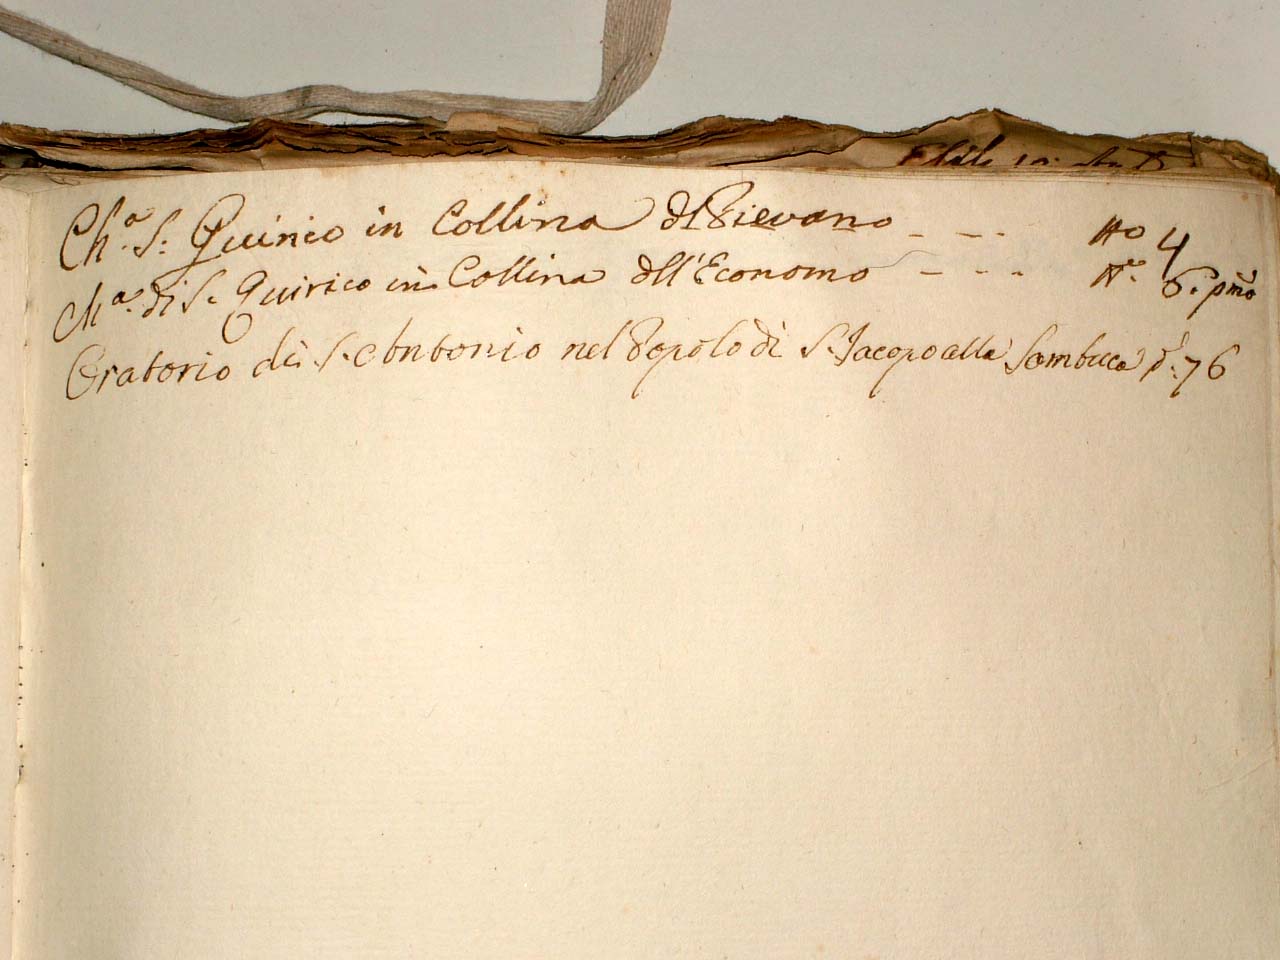 Ch.ª S: Quirico in Collina dl Pievano - - - No 4
Ch.ª di S. Quirico in Collina dll'Economo - - - N.º 6. pmo
Oratorio di S. Antonio nel Popolo di S. Jacopo alla Sambuca p. 76